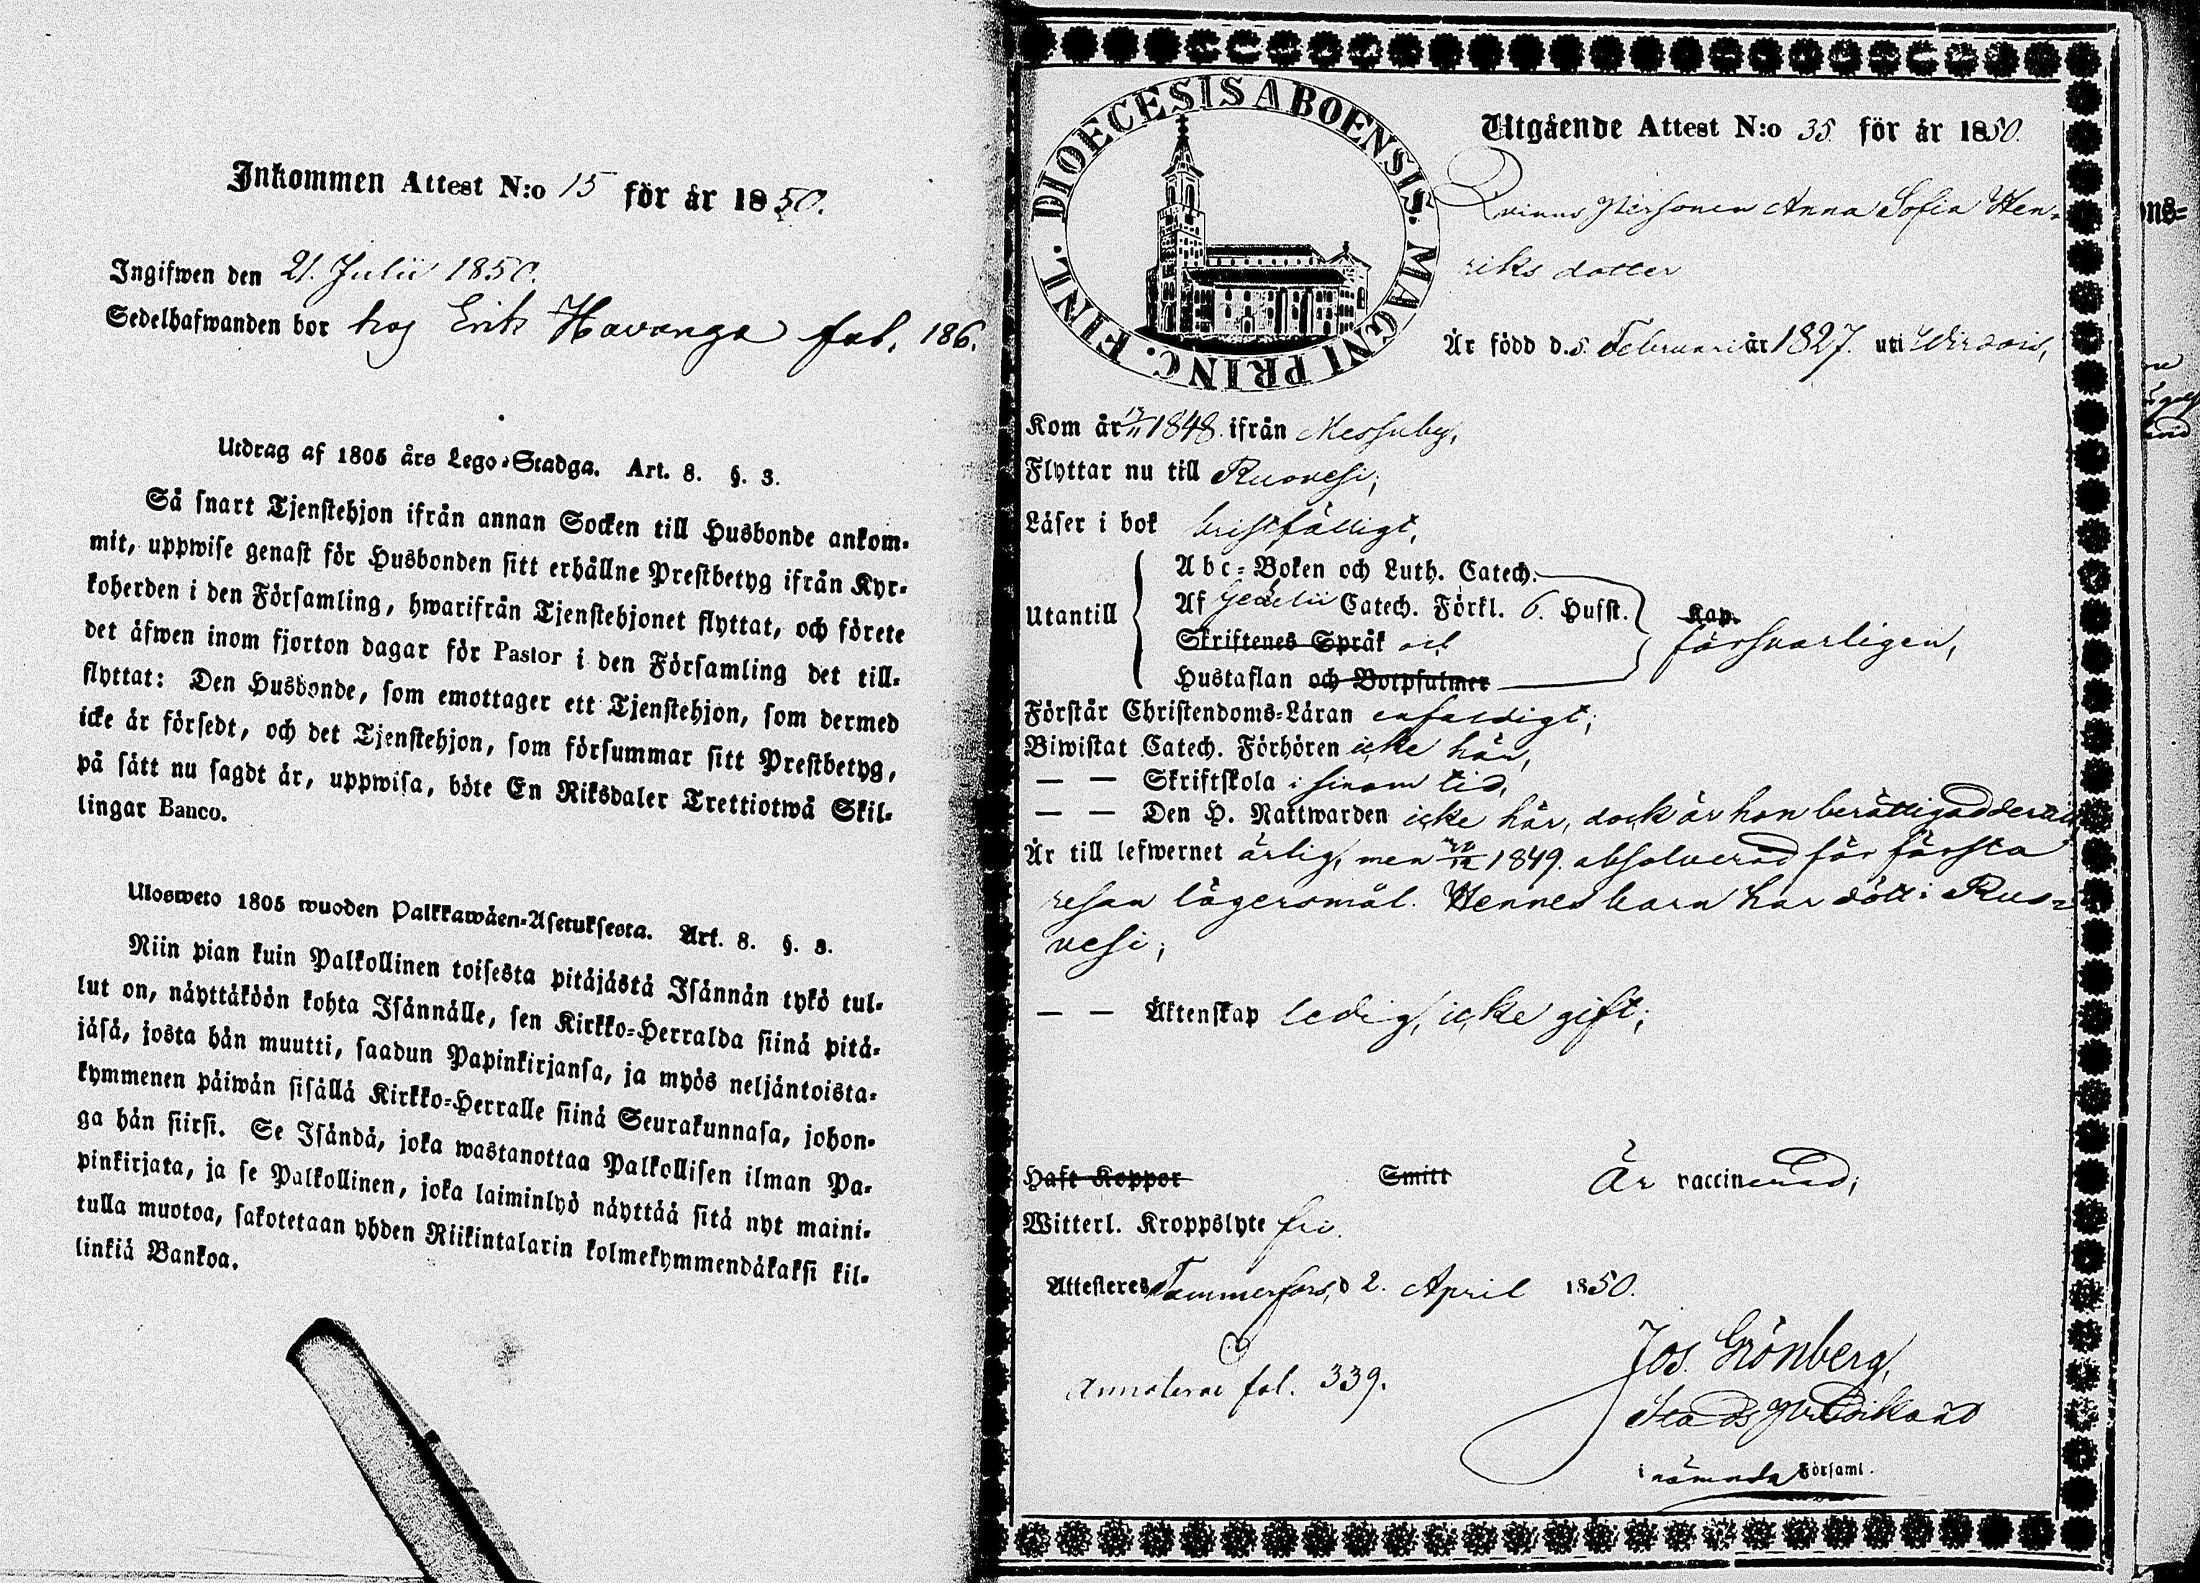 Inkommen Attest N:o 15 för år 1850.
Ingifwen den 21. Julii 1850.
Sedelhafwanden bor hos Erik Havanga fol. 186.
Utdrag af 1805 års Lego-Stadga. Art. 8. §. 3.
Så snart Tjenstehjon ifrån annan Socken till Husbonde ankom-
mit, uppwise genast för Husbonden sitt erhållne Prestbetyg ifrån Kyr-
koherden i den Församling, hwarifrån Tjenstehjonet flyttat, och förete
det äfwen inom fjorton dagar för Pastor i den Församling det till-
flyttat: Den Husbonde, som emottager ett Tjenstehjon, som dermed
icke är försedt, och det Tjenstehjon, som försummar sitt Prestbetyg,
på sätt nu sagdt är, uppwisa, böte En Riksdaler Trettiotwå Skil-
lingar Banco.
Ulosweto 1805 wuoden Palkkawäen-Asetuksesta. Art. 8. §. 3.
Niin pian kuin Palkollinen toisesta pitäjästä Isännän tykö tul-
lut on, näyttäköön kohta Isännälle, sen Kirkko-Herralda siinä pitä-
jäsä, josta hän muutti, saadun Papinkirjansa, ja myös neljäntoista-
kymmenen päiwän sisällä Kirkko-Herralle siinä Seurakunnasa, johon-
ga hän siirsi. Se Isändä, joka wastanottaa Palkollisen ilman Pa-
pinkirjata, ja se Palkollinen, joka laiminlyö näyttää sitä nyt maini-
tulla muotoa, sakotetaan yhden Riikintalarin kolmekymmendäkaksi kil-
linkiä Bankoa.
FINL. DIOECESIS ABOENSIS. MAGNI PRINC.
Utgående Attest N:o 35 för år 1850.
Qvinns Personen Anna Sofia Hen-
riks dotter
Är född d. 5. Februari år 1827. uti Wirdois,
Kom år 1848. ifrån Messuby,
Flyttar nu till Ruovesi,
Läser i bok bristfälligt,
Abc-Boken och Luth. Catech.
Utantill Af Catech. Förkl. 6. Husst. Kap.
Skriftenes Språk och försvarligen,
Hustaflan och Botpsalmer
Förstår Christendoms-Läran enfaldigt;
Biwistat Catech. Förhören icke här,
— — Skriftskola i sinom tid,
— — Den H. Nattwarden icke här, dock är hon berättigad dertill
Är till lefwernet ärlig, men 1849. absolverad för första
resan lägersmål. Hennes barn har dött i Ruo-
vesi;
— — Äktenskap ledig, icke gift;
Haft Koppor Smitt Är vaccinerad;
Witterl. Kroppslyte fri.
Attesteres Tammerfors, d 2. April 1850.
Annoteras fol. 339.
Jos. Grönberg,
Stads Predikant
i nämnda Församl.